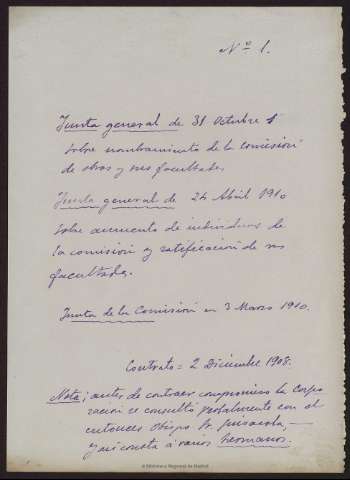 Nº 1.
Junta general de 31 Octubre
sobre nombramiento de la comisión
de obras y sus facultades.
Junta general de 24 Abril 1910
sobre aumento de individuos de
la comisión y ratificación de sus
facultades.
Junta de la Comisión en 3 Marzo 1910.
Contrato = 2 Diciembre 1908.
Nota; antes de contraer compromisos la Corpo
ración se consultó verbalmente con el
entonces Obispo Sr.
y así consta á varios hermanos.
© Biblioteca Regional de Madrid